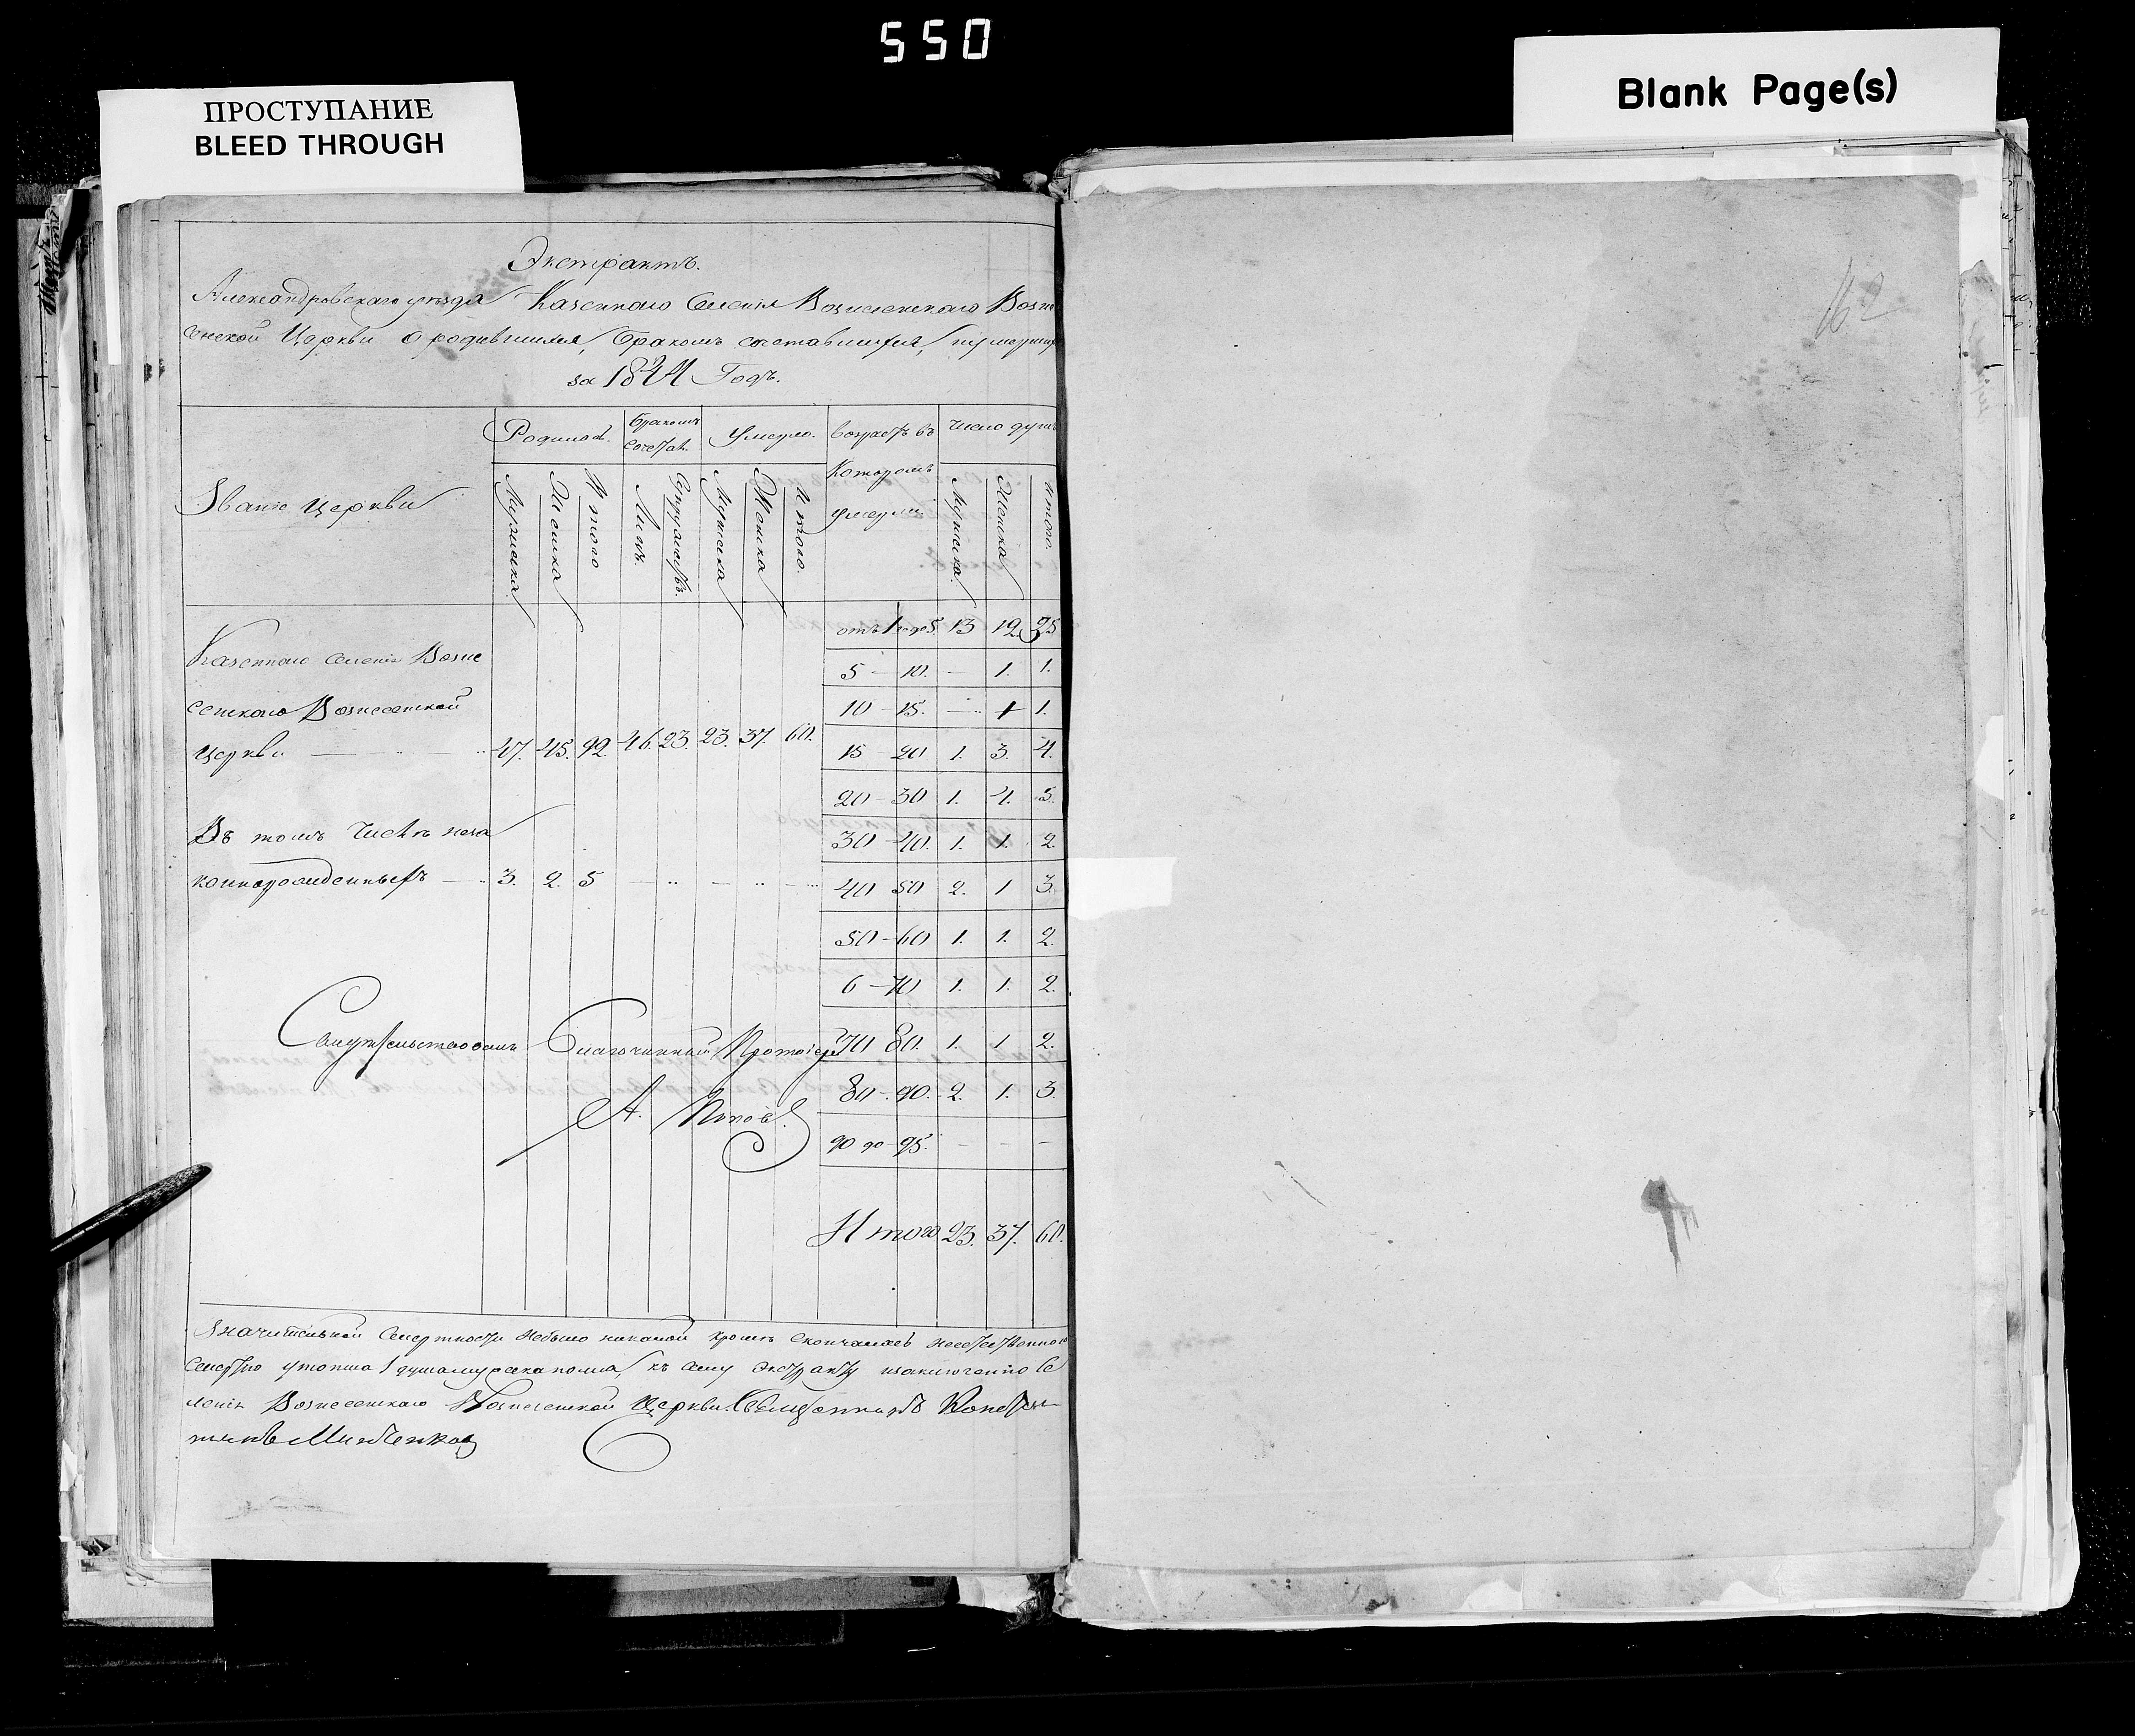 550
ПРОСТУПАНИЕ
BLEED THROUGH
Blank Page(s)
162
Экстрактъ.
Александровскаго уѣзда Казеннаго Селенія Вознесенскаго Возне
сенской Церкви о родившихся, бракомъ сочетавшихся, и умершихъ
за Годъ.
Званіе Церкви
Родилось. Бракомъ сочетал. Умерло. возрастъ въ которомъ умерли Число душъ
Мужеска Женска Итого Лицъ. Супружествъ. Мужеска Женска Итого. Мужеска. Женска Итого.
отъ 1 до 5. 13 12. 25
Казеннаго селенія Возне
5 — 10. — 1. 1.
сенскаго Вознесенской
10 — 15. — 1 1.
церкви 47. 45. 92. 46. 23. 23. 37. 60.
15 — 20 1. 3. 4.
20 — 30 1. 4. 5.
Въ томъ числѣ неза
30 — 40. 1. 1. 2.
коннорожденныхъ — 3. 2. 5
40 50 2. 1 3.
50 — 60 1. 1. 2.
6 — 70 1. 1. 2.
Свидѣтельствовалъ Благочинный Протоіерей
70 80. 1. 1 2.
А. Поповъ.
80 — 90. 2. 1. 3.
90 до 95. — — —
Итого 23. 37. 60.
Значительной Смертности небыло никакой кромѣ
смертію 1 душа мужеска пола, къ сему Экстракту Се
ленія Вознесенскаго Вознесенской Церкви Священникъ Констан
тинъ